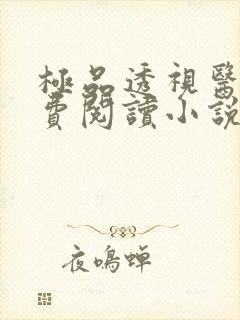 極品透視醫
費閱讀小説
夜鳴蟬